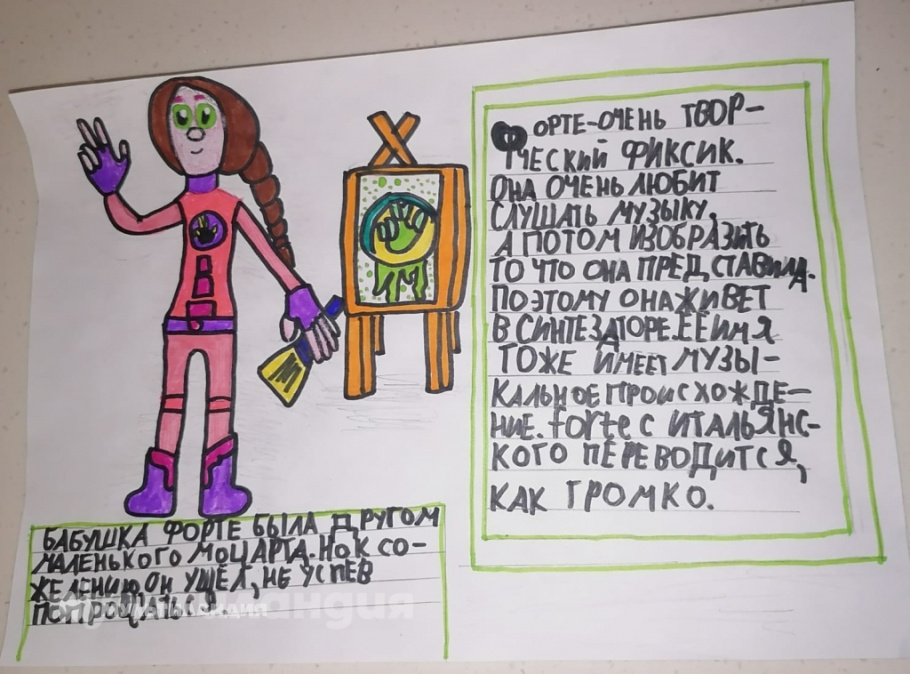 ФОРТЕ-ОЧЕНЬ ТВОР-
ЧЕСКИЙ ФИКСИК.
ОНА ОЧЕНЬ ЛЮБИТ
СЛУШАТЬ МУЗЫКУ,
А ПОТОМ ИЗОБРАЗИТЬ
ТО ЧТО ОНА ПРЕДСТАВИЛА.
ПОЭТОМУ ОНА ЖИВЁТ
В СИНТЕЗАТОРЕ. ЕЁ ИМЯ
ТОЖЕ ИМЕЕТ МУЗЫ-
КАЛЬНОЕ ПРОИСХОЖДЕ-
НИЕ. forte С ИТАЛЬЯНС-
КОГО ПЕРЕВОДИТСЯ,
КАК ГРОМКО.
БАБУШКА ФОРТЕ БЫЛА ДРУГОМ
МАЛЕНЬКОГО МОЦАРТА. НО К СО-
ЖЕЛЕНИЮ, ОН УШЁЛ, НЕ УСПЕВ
ПОПРОЩАТЬСЯ.